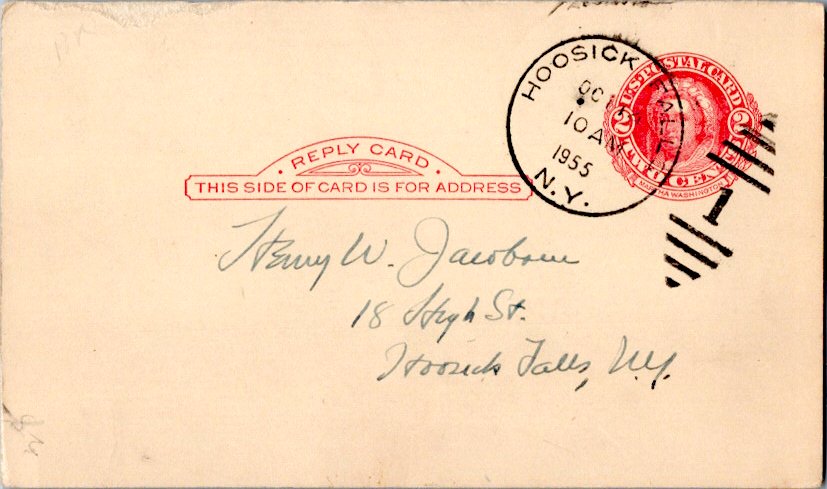 HOOSICK FALLS
OCT
10 AM
1955
N.Y.
U.S. POSTAL CARD
2 2
TWO CENTS
MARTHA WASHINGTON
1
REPLY CARD
THIS SIDE OF CARD IS FOR ADDRESS
Henry W.
18 High St.
Hoosick Falls, N.Y.